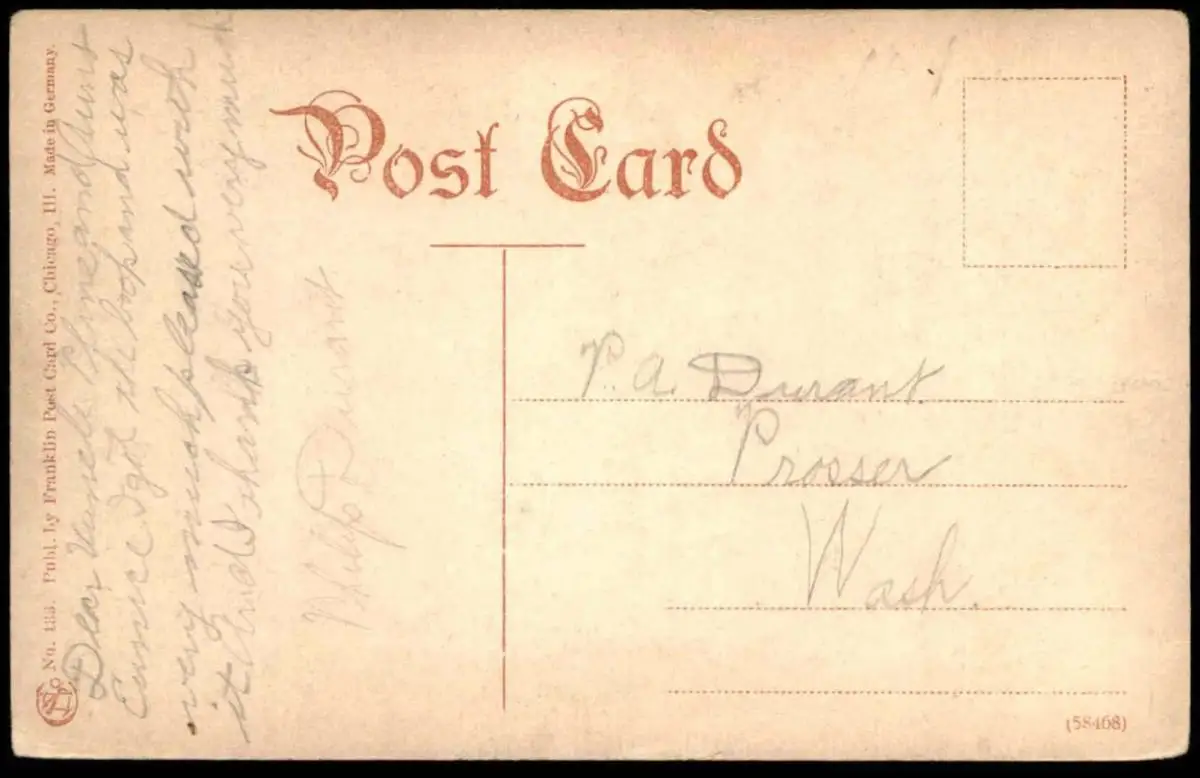 Post Card
No. 133. Publ. by Franklin Post Card Co., Chicago, Ill. Made in Germany.
Dear Uncle and Aunt
Eunice I got the book and was
very much pleased with
it and thank you very much
Philip Durant
P. A. Durant
Prosser
Wash.
(58468)